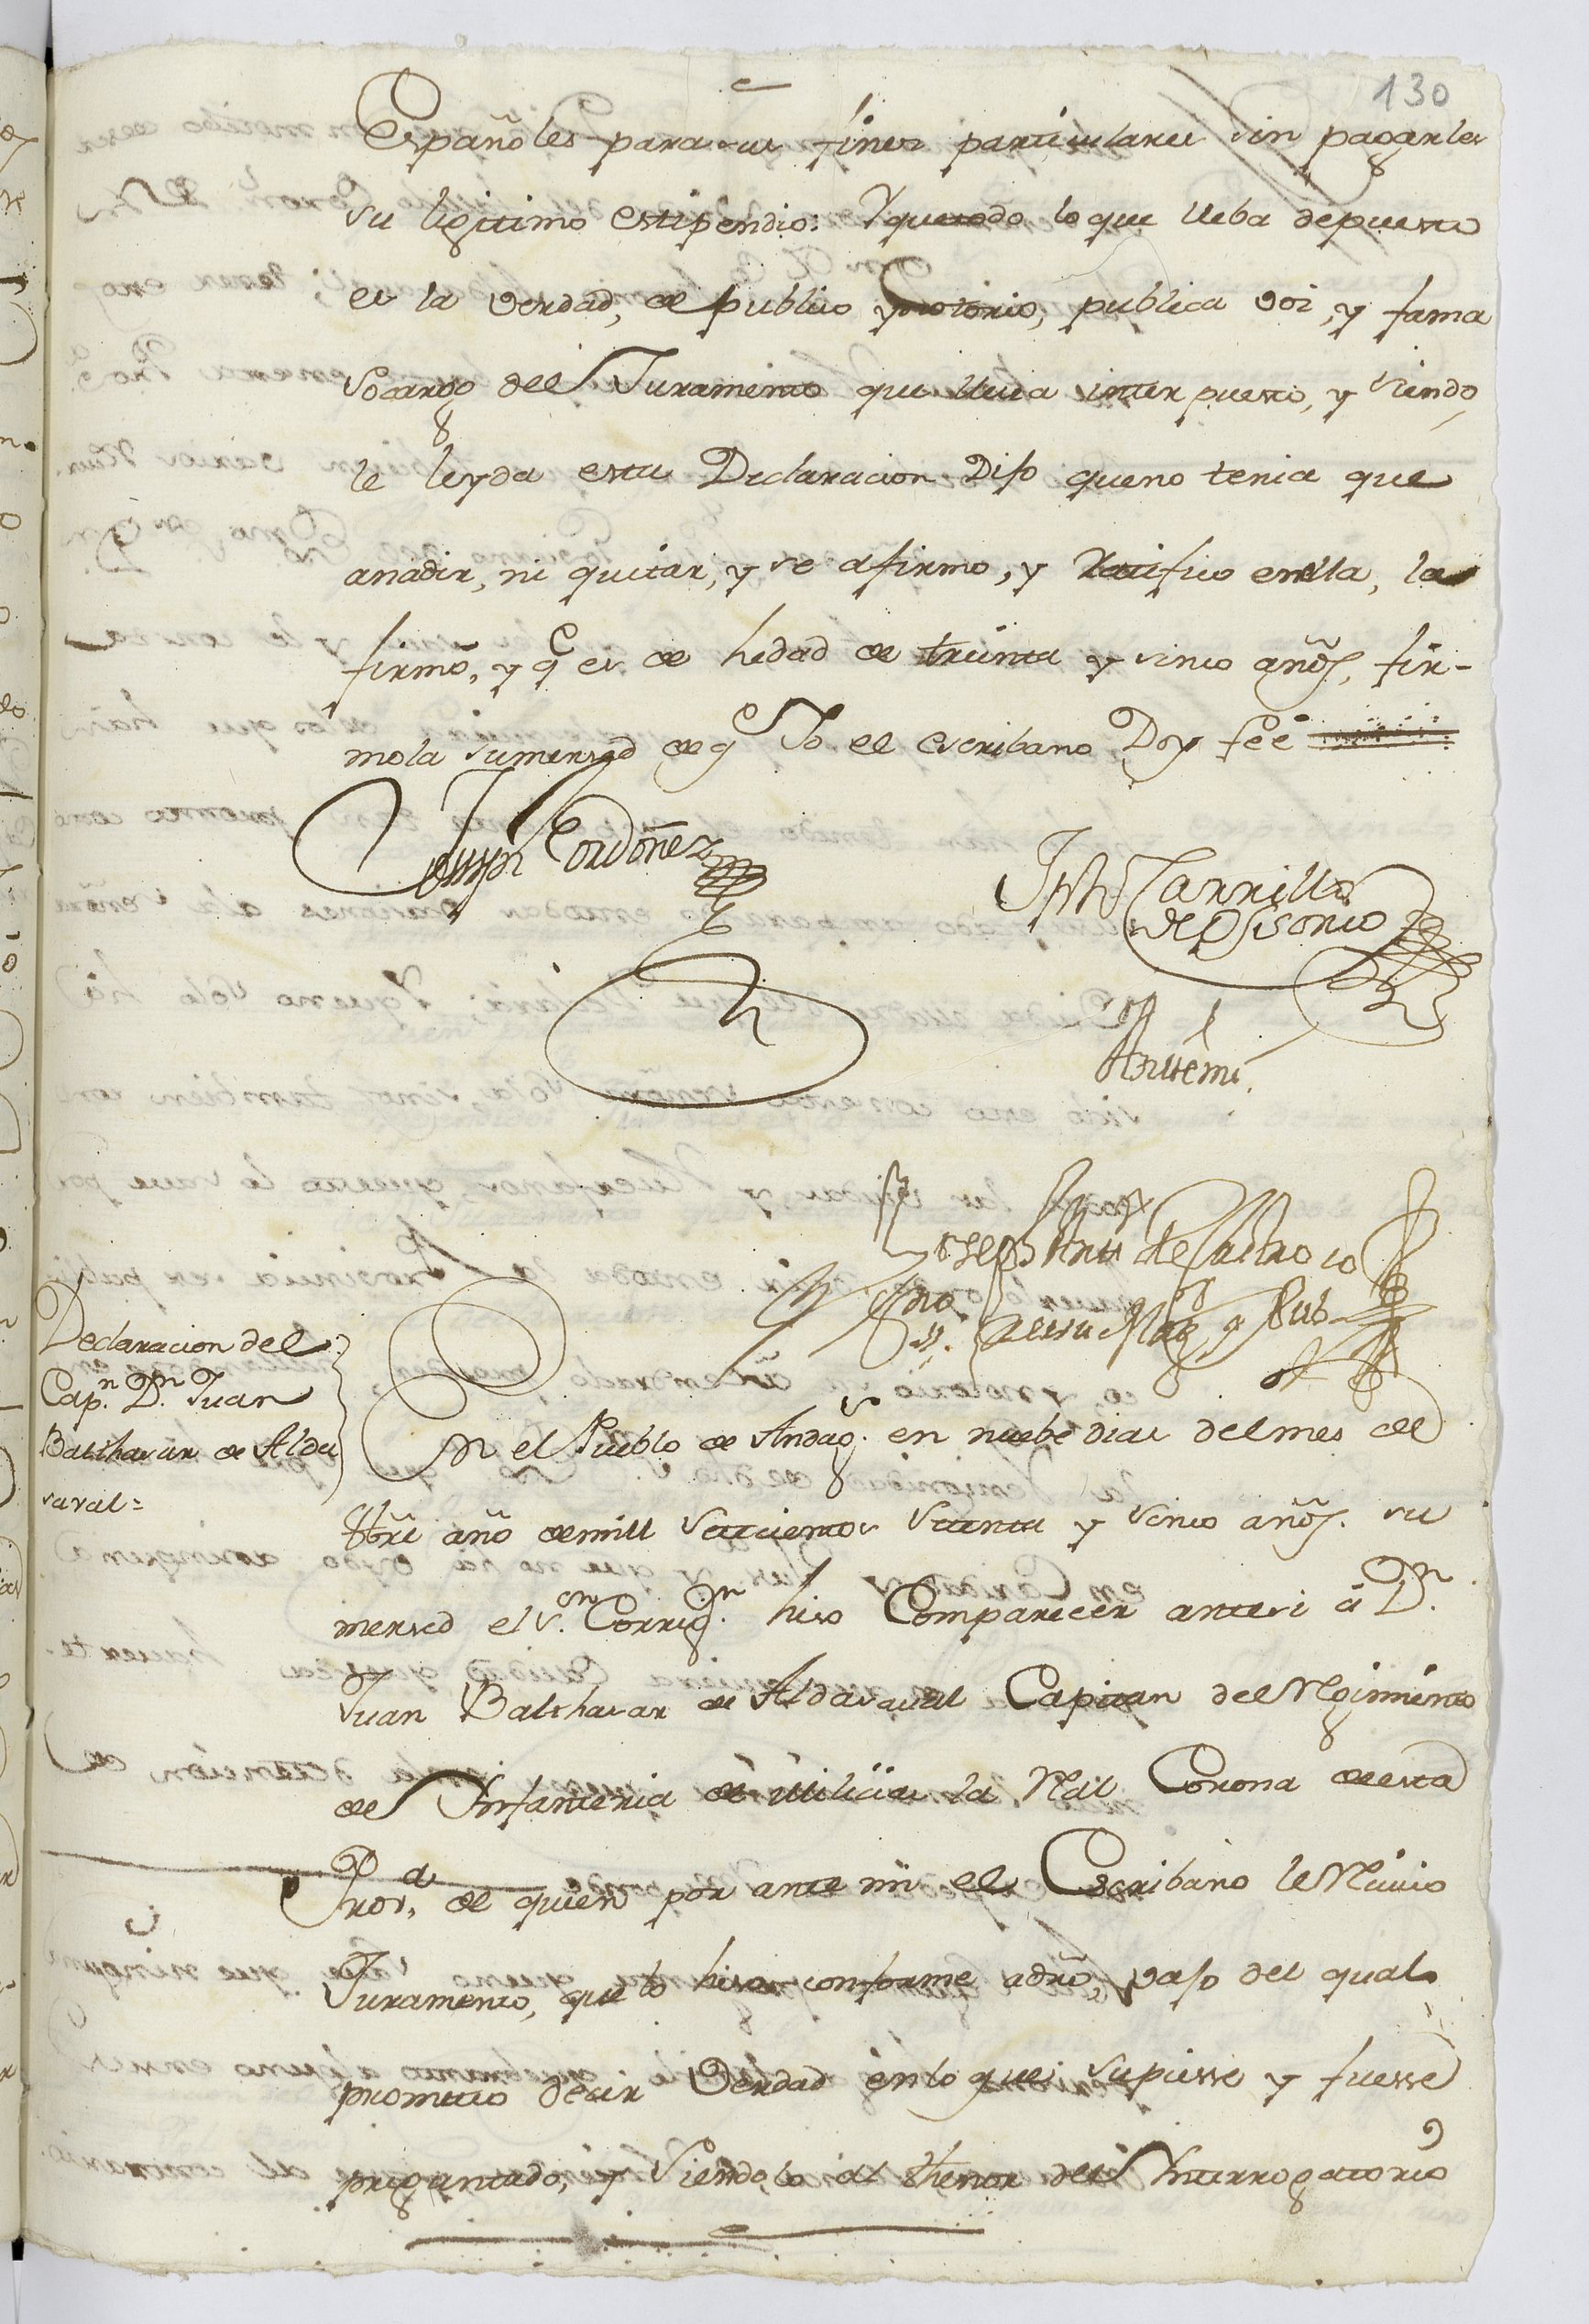 130
Españoles para sus fines particulares sin pagarles
su ligitimo estipendio: Y que todo lo que lleba depuesto
es la verdad, de publico y notorio, publica voz, y fama
socargo del Juramento que lleva interpuesto, y siendo
le leyda esta Declaracion Dijo que no tenia que
anadir, ni quitar, y se afirmo, y ratifico en ella, la
firmó, y q.e es de hedad de treinta y sinco años, fir-
mola su mersed de q.e Yo el escribano Doy feé
Joseph Ordoñez
Jph Carrillo
de Osorio
Antemi
Joseph Antt.o de Castro
ssno de su Mag.d Pub.co
Declaracion del
Cap.n D.n Juan
Balthasar de Alda
saval=
En el Pueblo de Andag.s en nuebe dias del mes de
bre año de mill Setecientos Setenta y Sinco años. su
mersed el s.or Correg.or hiso Comparecer antesi á D.n
Juan Balthasar de Aldasaval Capitan del Regimiento
de Infanteria de Milicias la Real Corona de esta
Prov.a de quien por ante mi el Escribano le Recivio
Juramento, que lo hiso conforme a dro, vajo del qual
prometio decir Verdad en lo que supiesse y fuesse
preguntado, y Siendolo al thenor del Interrogatorio